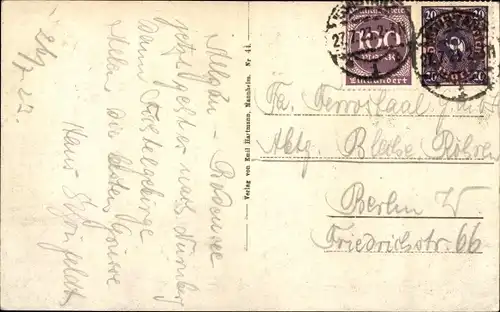 26/7. 23.
Allgäu – Bodensee
jetzt geht es nach Nürnberg
dann Fichtelgebirge
Allen die besten Grüsse
Hans
Verlag von Emil Hartmann, Mannheim. Nr 44.
Deutsches Reich
100
Mark
Einhundert
20 20
20 20
27.7.23
Fa. Ferrostaal G.m.b.H
Abtg. Bleche Röhren
Berlin W.
Friedrichstr. 66